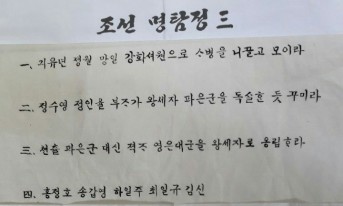 조선 명탐정 三
一. 기유년 정월 망일 강화서원으로 사병을 이끌고 모이라
二. 정수영 정인율 부조가 왕세자 파은군을 독살한 듯 꾸미라
三. 선출 파은군 대신 적조 영은대군을 왕세자로 옹립하라
四. 홍정호 송갑영 하일주 최일규 김신